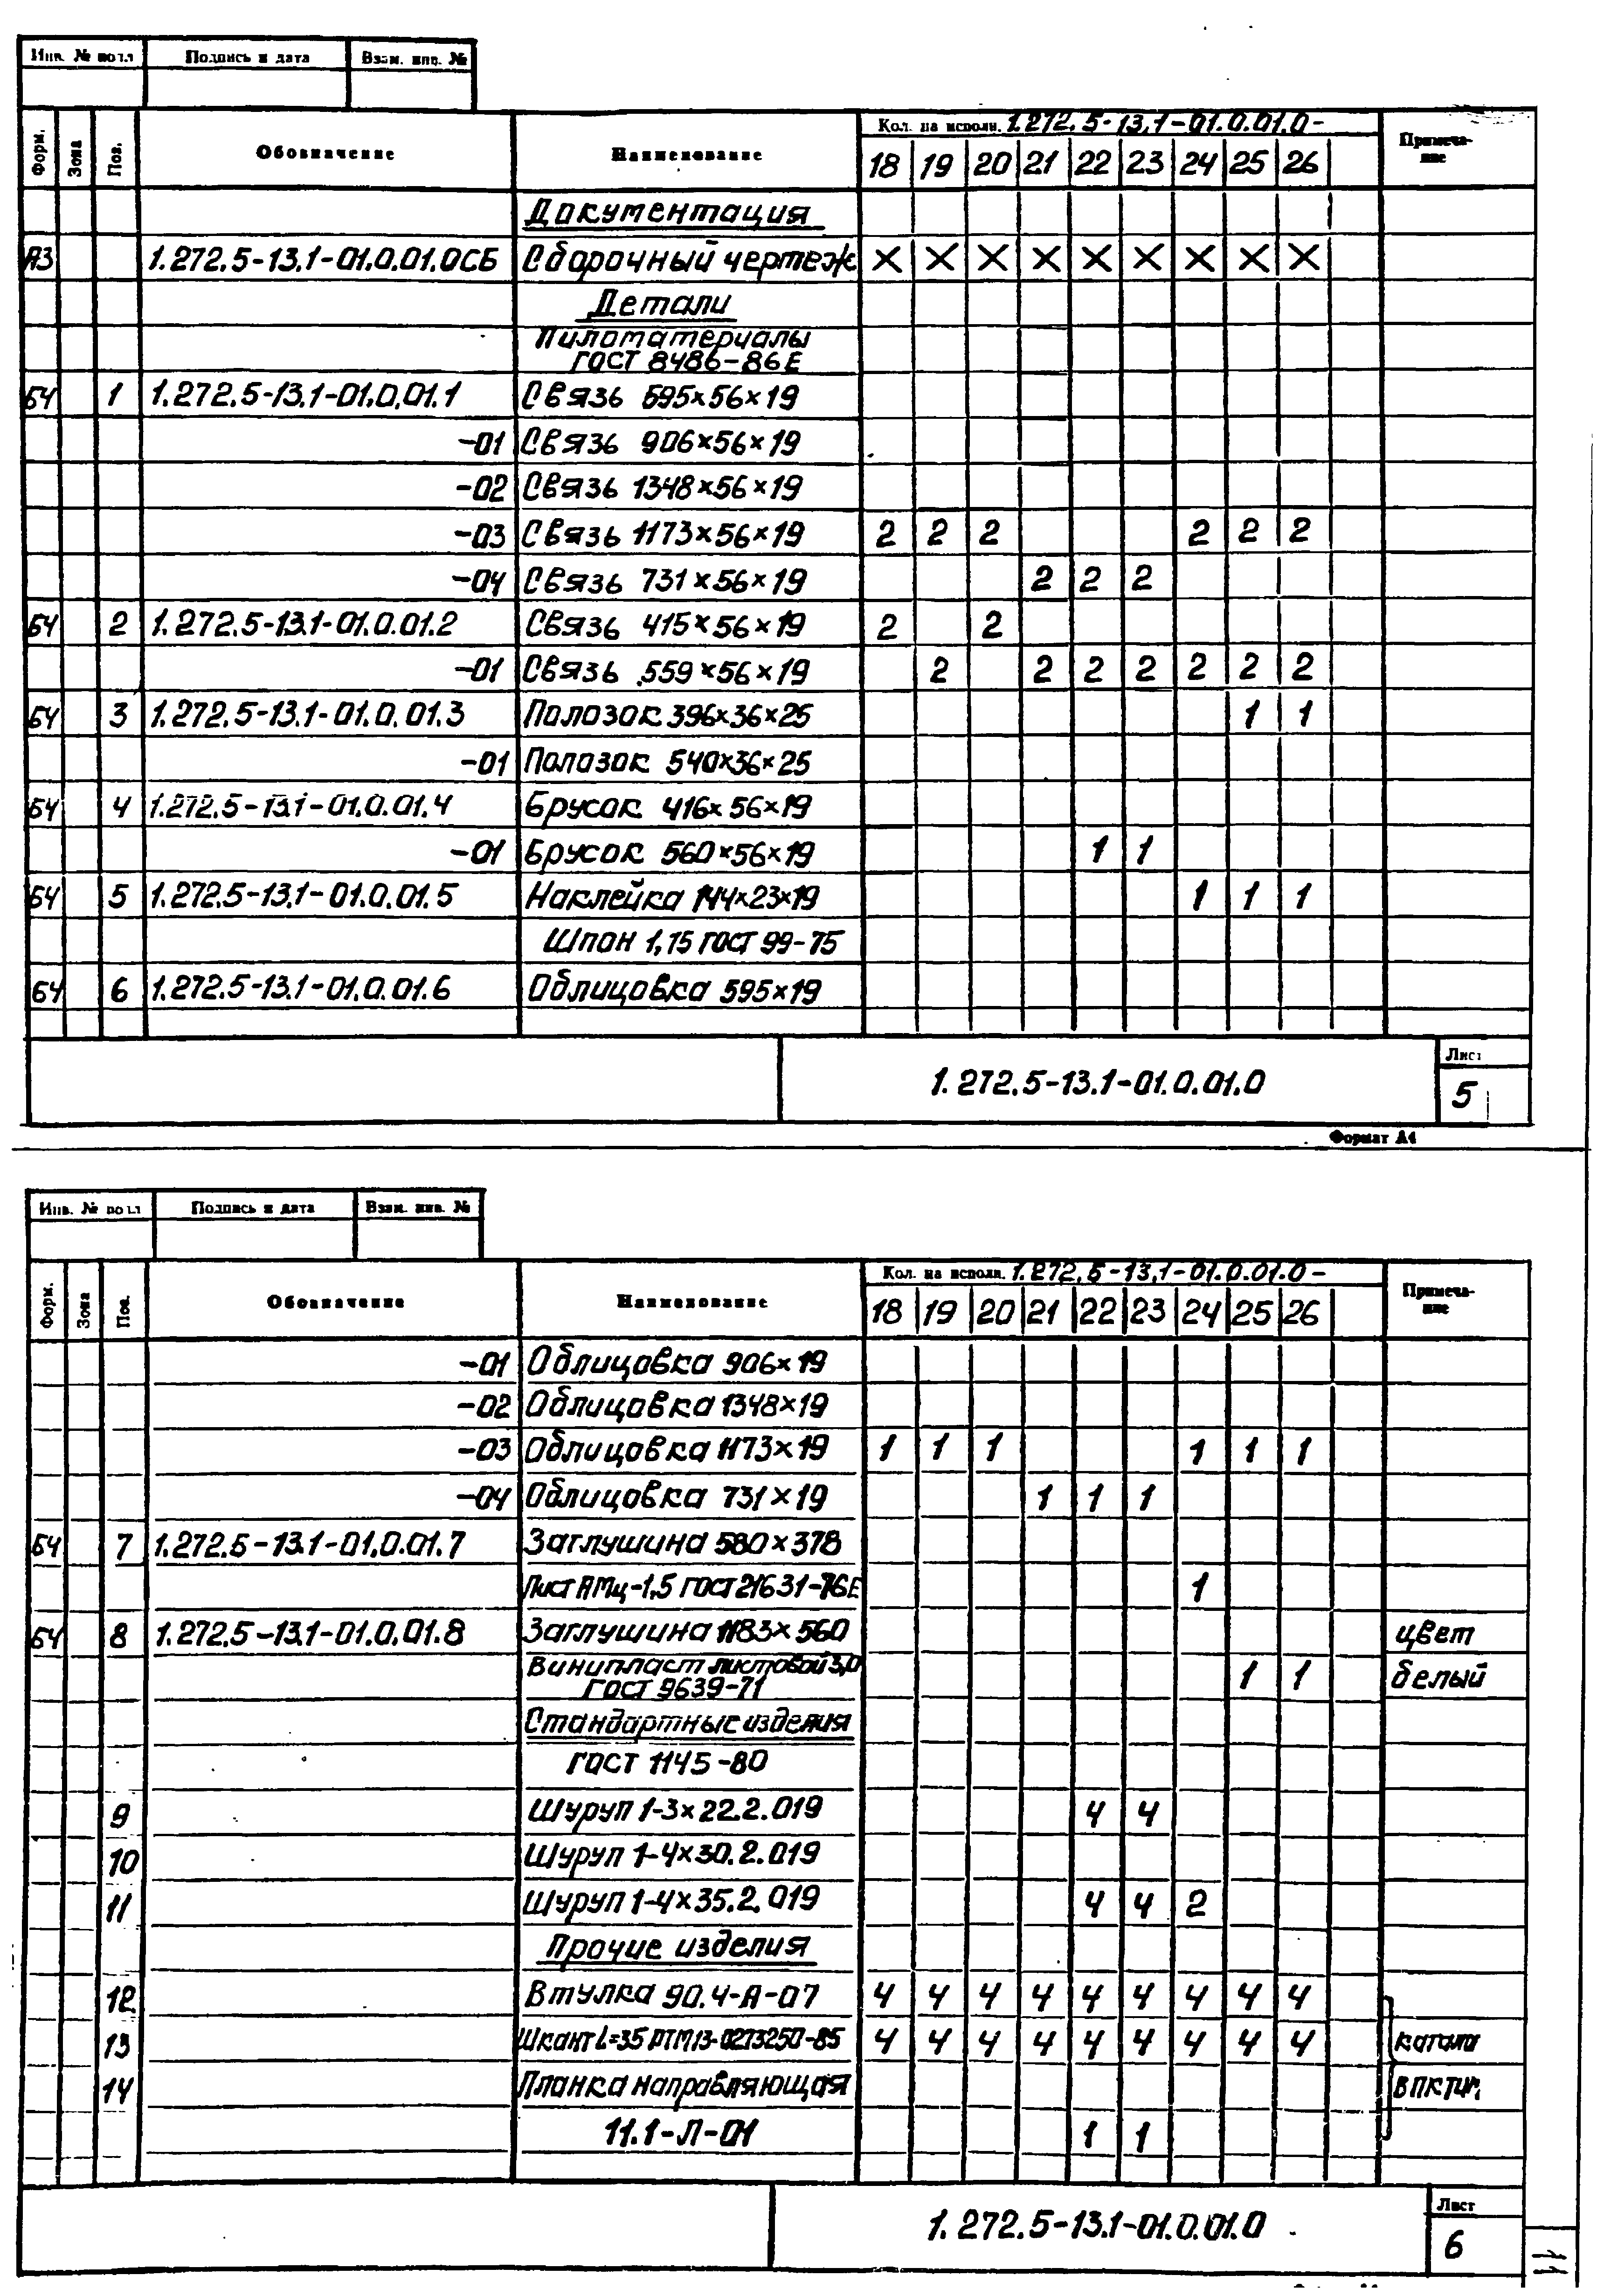 Инв. № подл Подпись и дата Взам. инв. №
Форм. Зона Поз. Обозначение Наименование Кол. на исполн. 1.272.5-13.1-01.0.01.0- Примеча-
ние
18 19 20 21 22 23 24 25 26
Документация
А3 1.272.5-13.1-01.0.01.0СБ Сборочный чертеж × × × × × × × × ×
Детали
Пиломатериалы
ГОСТ 8486-86Е
БЧ 1 1.272.5-13.1-01.0.01.1 Связь 595×56×19
-01 Связь 906×56×19
-02 Связь 1348×56×19
-03 Связь 1173×56×19 2 2 2 2 2 2
-04 Связь 731×56×19 2 2 2
БЧ 2 1.272.5-13.1-01.0.01.2 Связь 415×56×19 2 2
-01 Связь 559×56×19 2 2 2 2 2 2 2
БЧ 3 1.272.5-13.1-01.0.01.3 Полозок 396×36×25 1 1
-01 Полозок 540×36×25
БЧ 4 1.272.5-13.1-01.0.01.4 Брусок 416×56×19
-01 Брусок 560×56×19 1 1
БЧ 5 1.272.5-13.1-01.0.01.5 Наклейка 144×23×19 1 1 1
Шпон 1,15 ГОСТ 99-75
БЧ 6 1.272.5-13.1-01.0.01.6 Облицовка 595×19
1.272.5-13.1-01.0.01.0
Лист
5
Формат А4
Инв. № подл Подпись и дата Взам. инв. №
Форм. Зона Поз. Обозначение Наименование Кол. на исполн. 1.272.5-13.1-01.0.01.0- Примеча-
ние
18 19 20 21 22 23 24 25 26
-01 Облицовка 906×19
-02 Облицовка 1348×19
-03 Облицовка 1173×19 1 1 1 1 1 1
-04 Облицовка 731×19 1 1 1
БЧ 7 1.272.5-13.1-01.0.01.7 Заглушина 580×378
Лист АМц-1,5 ГОСТ 21631-76Е 1
БЧ 8 1.272.5-13.1-01.0.01.8 Заглушина 1183×560 цвет
Винипласт листовой 3,0 1 1 белый
ГОСТ 9639-71
Стандартные изделия
ГОСТ 1145-80
9 Шуруп 1-3×22.2.019 4 4
10 Шуруп 1-4×30.2.019
11 Шуруп 1-4×35.2.019 4 4 2
Прочие изделия
12 Втулка 90.4-А-07 4 4 4 4 4 4 4 4 4
13 Шкант L=35 РТМ13-0273250-85 4 4 4 4 4 4 4 4 4
14 Планка направляющая ВПКТИМ
11.1-Л-01 1 1
1.272.5-13.1-01.0.01.0
Лист
6
11